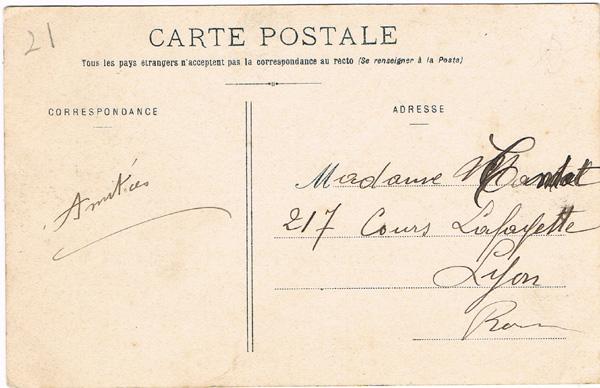 21
CARTE POSTALE
Tous les pays étrangers n'acceptent pas la correspondance au recto (Se renseigner à la Poste)
CORRESPONDANCE
ADRESSE
Amitiés
Madame
217 Cours Lafayette
Lyon